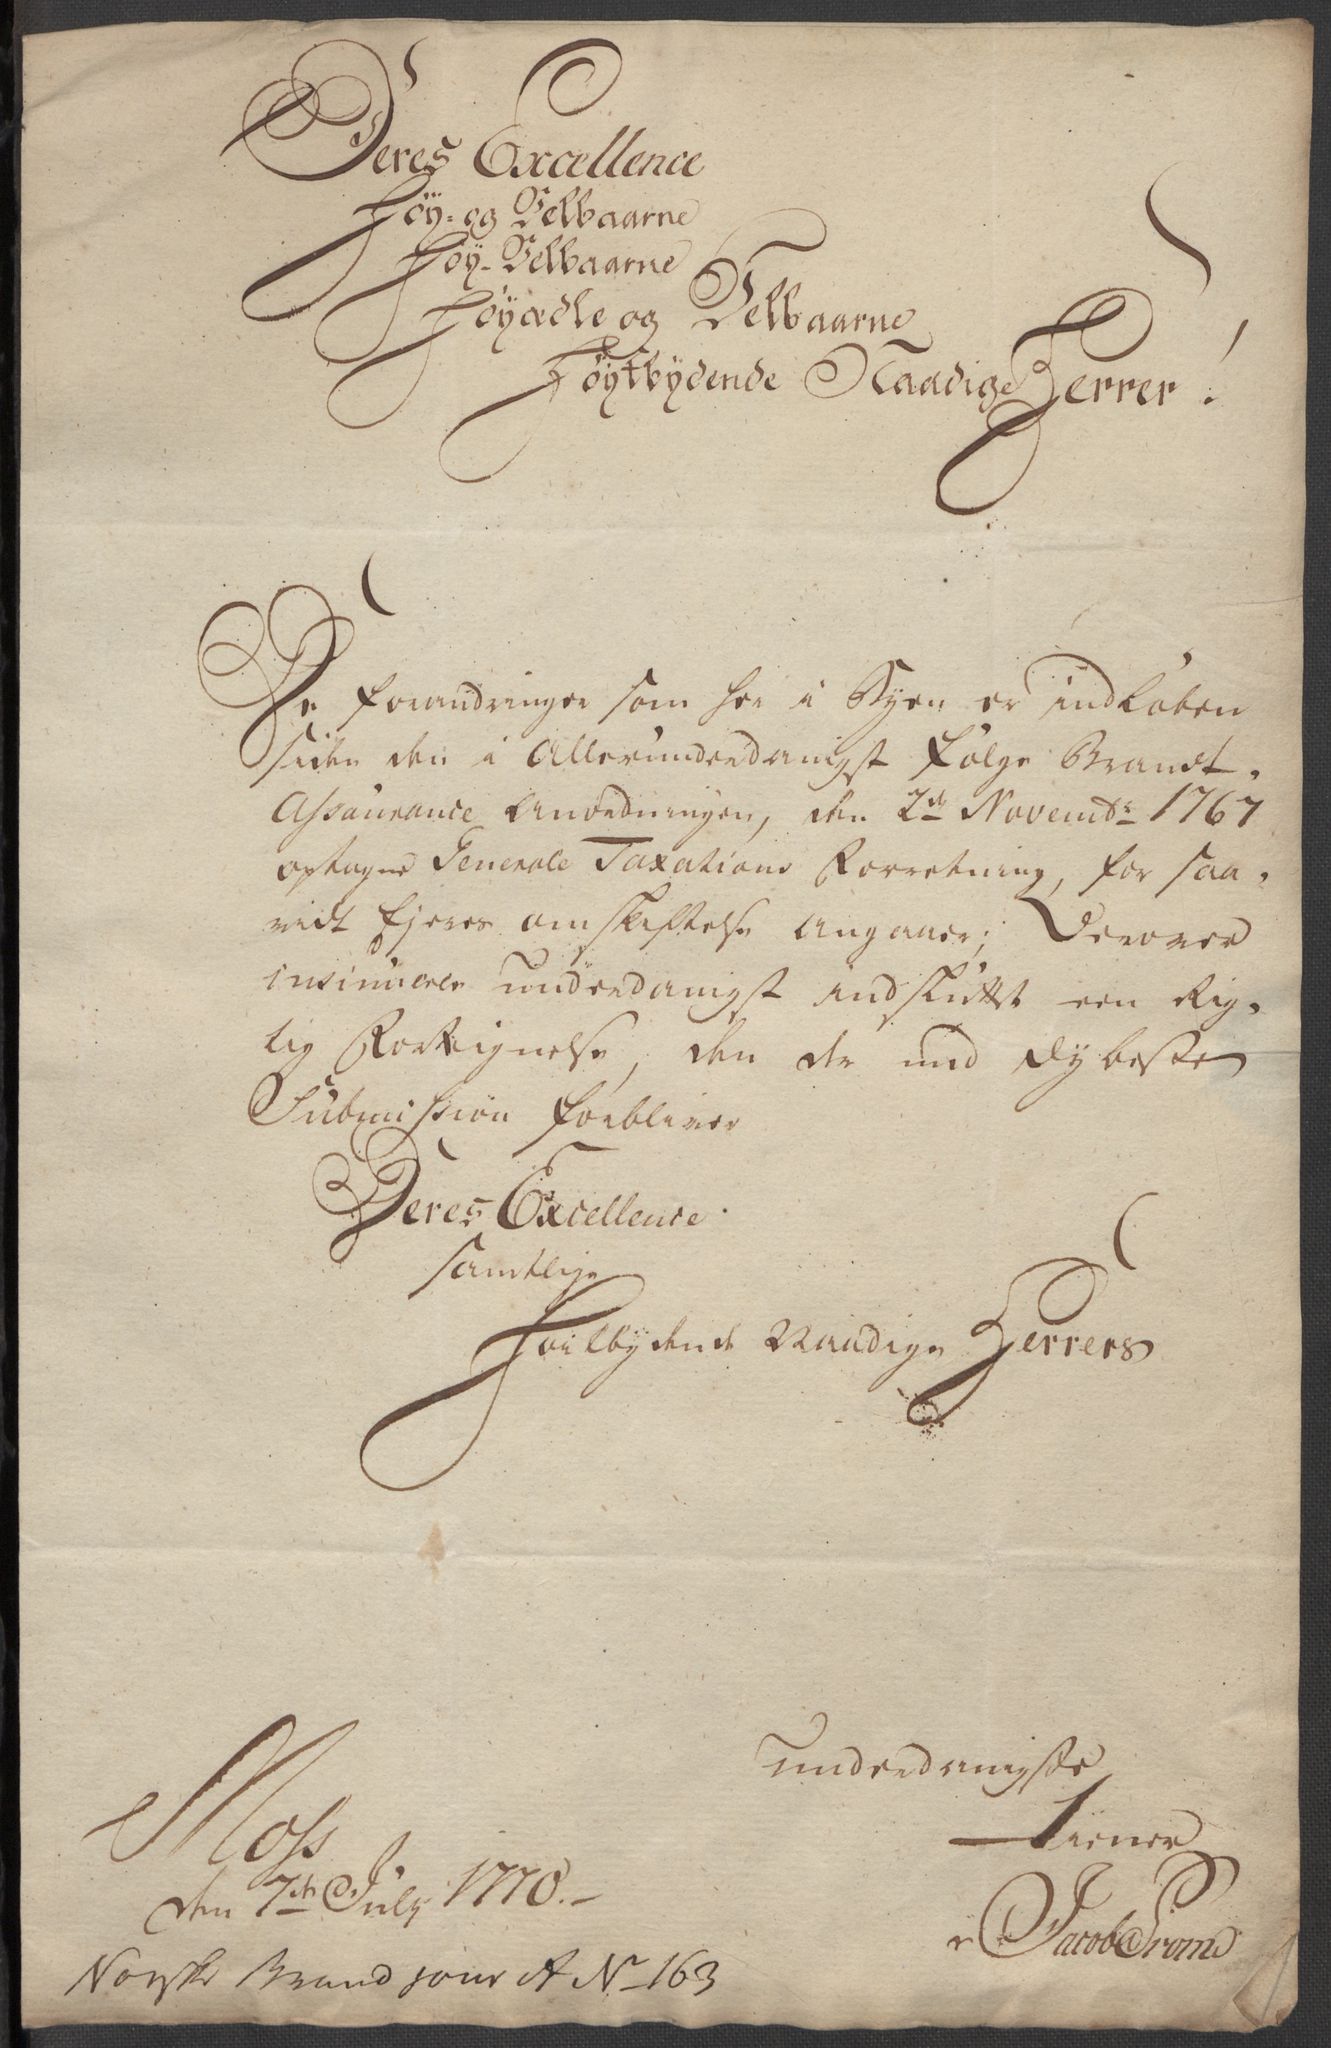 Deres Excellence
Høy- og Velbaarne
Høy-Velbaarne
Høyædle og Velbaarne
Høytbydende Naadige Herrer!
De forandringer som her i Byen er indløben
siden den i Allerunderdanigst følge Brandt-
Assurance Anordningen, den 2den Novembr 1767
optagne Generale Taxations Forretning, for saa-
vidt Ejeres omskiftelse angaaer; Derover
insinuerer underdanigst indsluttet een Rig-
tig Fortegnelse, den der med dybeste
Submission forbliver
Deres Excellence
samtlige
Høitbydende Naadige Herrers
underdanigste
Tiener
Jacob Trom
Moss
den 7de July 1770.-
Norske Brand jour A No 163